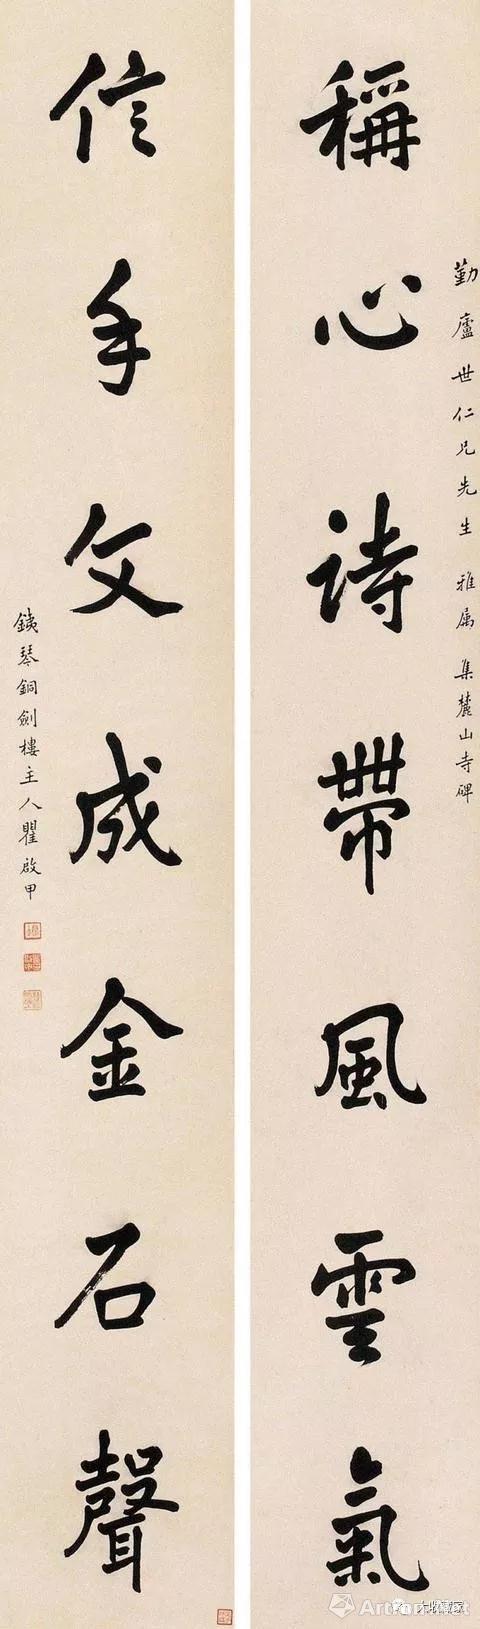 稱心詩帶風雲氣
勤廬世仁兄先生 雅屬 集麓山寺碑
信手文成金石聲
鐵琴銅劍樓主人瞿啟甲
Artron.net
大收藏家